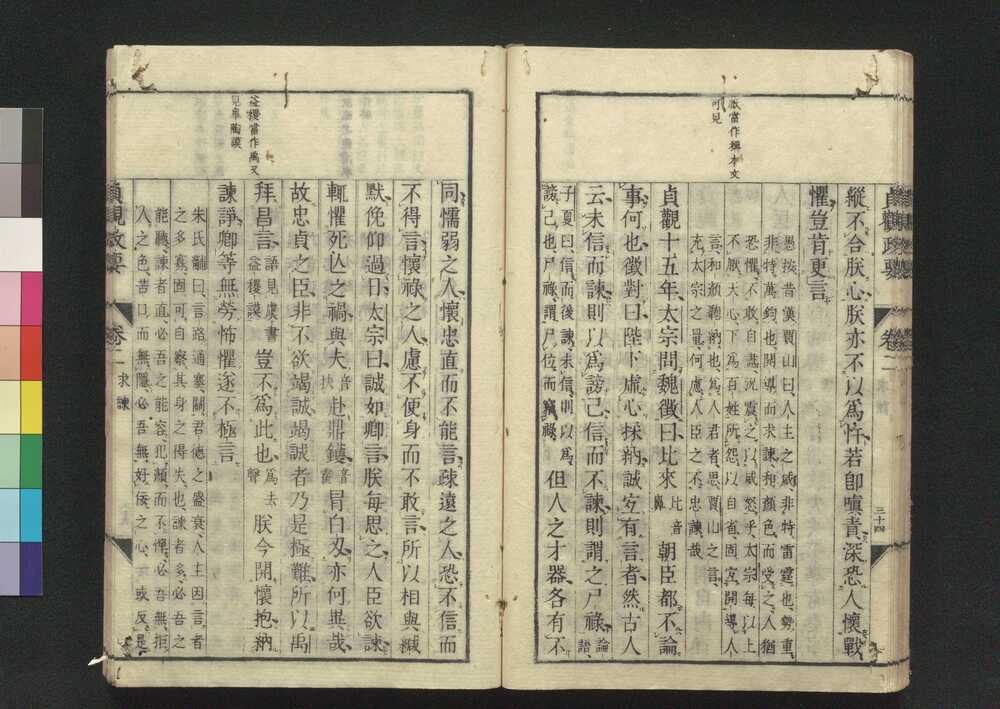 貞觀政要 卷二 求諫 三十四
縱不合朕心朕亦不以爲忤若卽嗔責深恐人懷戰
懼豈肯更言
愚按昔漢賈山曰人主之威非特雷霆也勢重
非特萬鈞也開導而求諫和顏色而受之人猶
恐懼不敢自盡況震之以威怒乎太宗每以上
不厭天心下爲百姓所怨以自省固宜開導人
言和顏聽納也爲人君者思賈山之言
充太宗之量何慮人臣之不忠諫哉
貞觀十五年太宗問魏徵曰比來比音鼻朝臣都不論
事何也徵對曰陛下虛心採納誠宜有言者然古人
云未信而諫則以爲謗己信而不諫則謂之尸祿論語
子夏曰信而後諫未信則以爲
謗己也尸祿謂尸位而竊祿但人之才器各有不
厭當作稱本文
可見
同懦弱之人懷忠直而不能言疎遠之人恐不信而
不得言懷祿之人慮不便身而不敢言所以相與緘
默俛仰過日太宗曰誠如卿言朕每思之人臣欲諫
輒懼死亾之禍與夫音扶赴鼎鑊音冒白刃亦何異哉
故忠貞之臣非不欲竭誠竭誠者乃是極難所以禹
拜昌言語見虞書益稷謨豈不爲此也爲去聲朕今開懷抱納
諫諍卿等無勞怖懼遂不極言
朱氏黼曰言路通塞關君德之盛衰人主因言者
之多寡固可自察其身之得失也諫者多必吾之
能聽諫者直必吾之能容犯顏而不懼必吾無拒
人之色苦口而無隱必吾無好佞之心一或反是
貞觀政要 卷二 求諫
益稷當作禹又
見皐陶謨